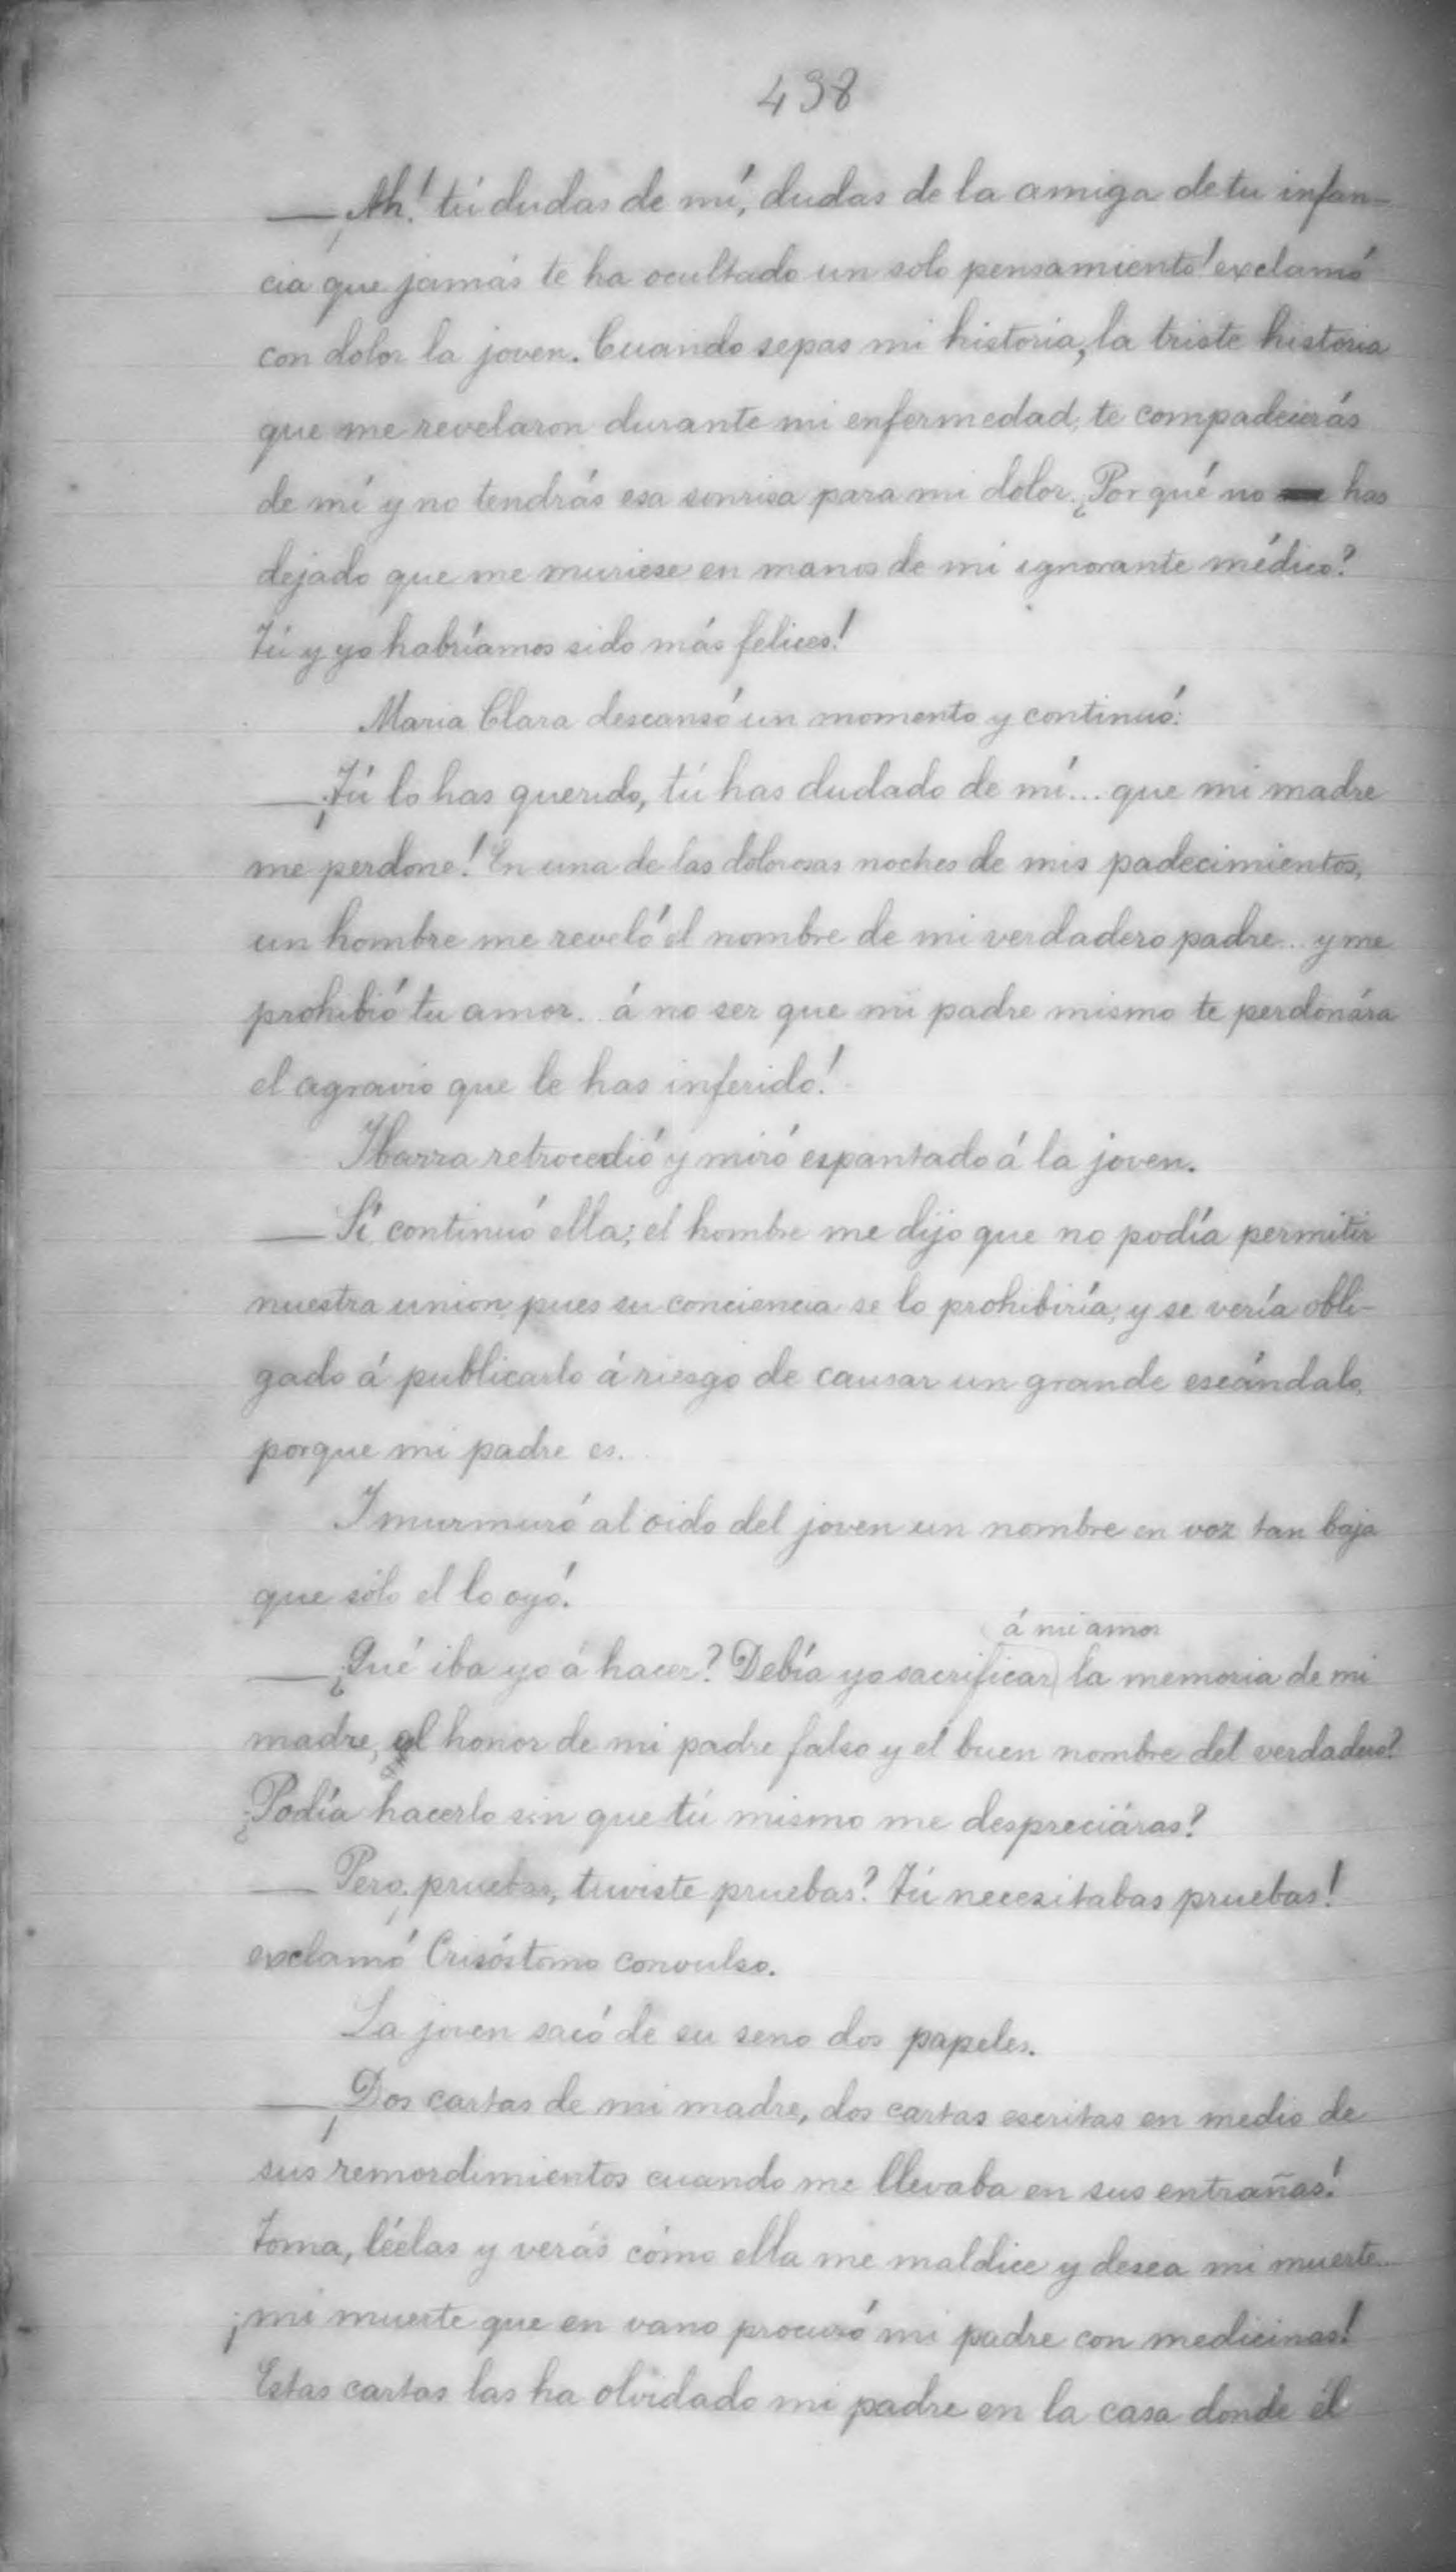 438
— ¡Ah! tú dudas de mí, dudas de la amiga de tu infan-
cia que jamás te ha ocultado un solo pensamiento! exclamó
con dolor la joven. Cuando sepas mi historia, la triste historia
que me revelaron durante mi enfermedad, te compadecerás
de mí y no tendrás esa sonrisa para mi dolor. ¿Por qué no has
dejado que me muriese en manos de mi ignorante médico?
Tú y yo habríamos sido más felices!
Maria Clara descansó un momento y continuó:
— ¡Tú lo has querido, tú has dudado de mí... que mi madre
me perdone! En una de las dolorosas noches de mis padecimientos,
un hombre me reveló el nombre de mi verdadero padre... y me
prohibió tu amor.. á no ser que mi padre mismo te perdonára
el agravio que le has inferido!
Ibarra retrocedió y miró espantado á la joven.
— Sí, continuó ella; el hombre me dijo que no podía permitir
nuestra union, pues su conciencia se lo prohibiría, y se vería obli-
gado á publicarlo á riesgo de causar un grande escándalo,
porque mi padre es..
I murmuró al oido del joven un nombre en voz tan baja
que sólo el lo oyó.
á mi amor
— ¿Qué iba yo á hacer? Debía yo sacrificar la memoria de mi
madre, el honor de mi padre falso y el buen nombre del verdadero?
¿Podía hacerlo sin que tú mismo me despreciáras?
— Pero, pruebas, tuviste pruebas? Tú necesitabas pruebas!
exclamó Crisóstomo convulso.
La joven sacó de su seno dos papeles.
— ¡Dos cartas de mi madre, dos cartas escritas en medio de
sus remordimientos cuando me llevaba en sus entrañas!
Toma, léelas y verás cómo ella me maldice y desea mi muerte...
¡mi muerte que en vano procuró mi padre con medicinas!
Estas cartas las ha olvidado mi padre en la casa donde él